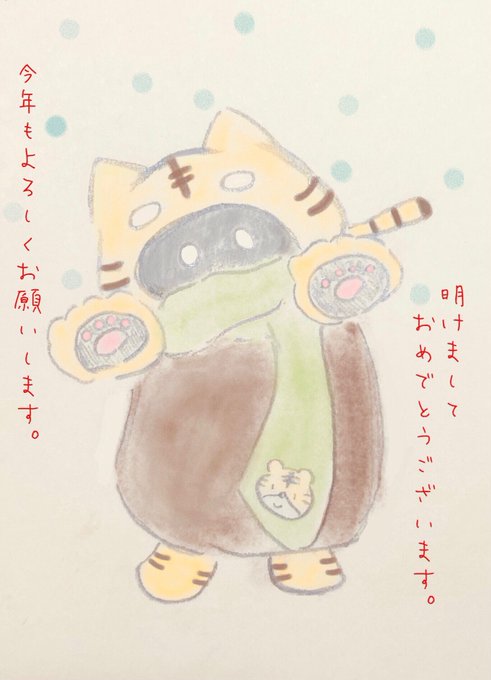 明けまして
おめでとうございます。
今年もよろしくお願いします。